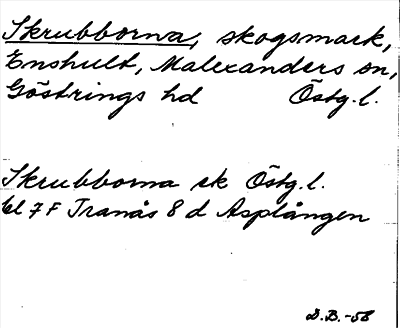 Skrubborna, skogsmark,
Enshult, Malexanders sn,
Göstrings hd Östg.l.
Skrubborna sk Östg.l.
bl 7 F Tranås 8 d Asplången
D.B.-58